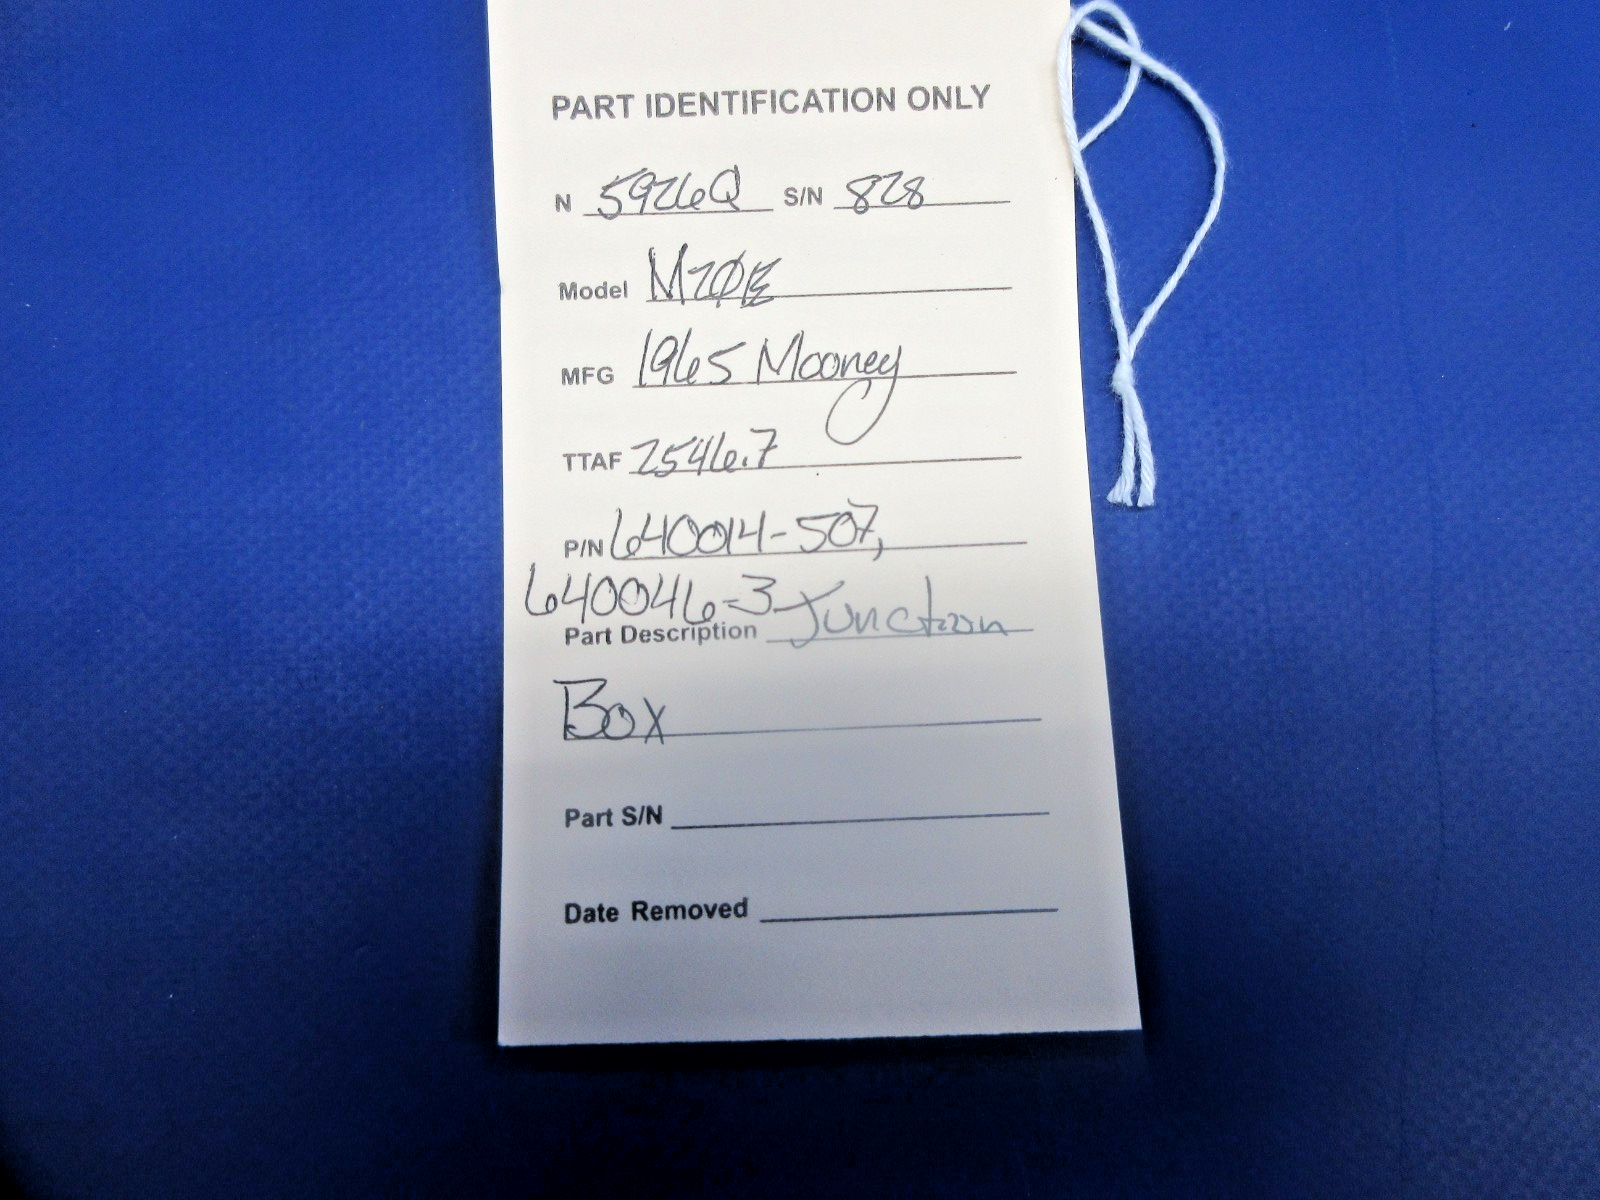 PART IDENTIFICATION ONLY
N 5926Q S/N 828
Model M20E
MFG 1965 Mooney
TTAF 2546.7
P/N 640014-507,
640046-3
Part Description Junction
Box
Part S/N
Date Removed